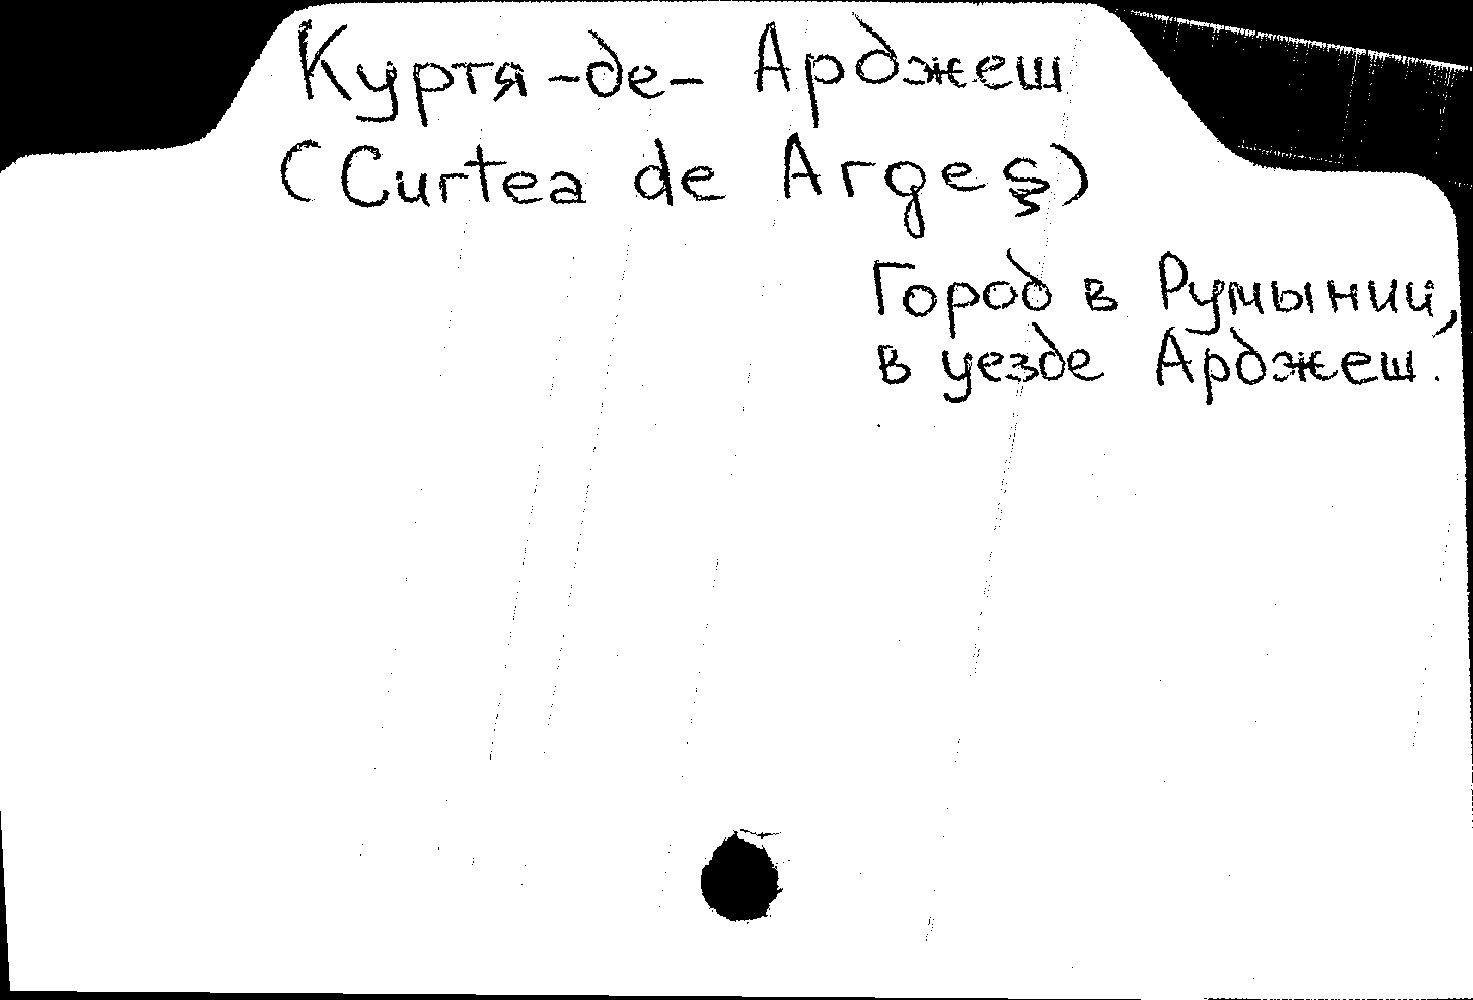 Куртя-де- Арджеш
(Curtea de Argeş)
Город в Румынии,
в уезде Арджеш.